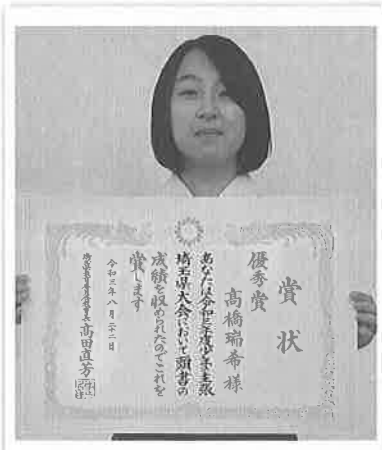 賞状
優秀賞
高橋瑞希様
あなたは令和三年度少年の主張
埼玉県大会において頭書の
成績を収められたのでこれを
賞します
令和三年八月二十二日
高田直芳